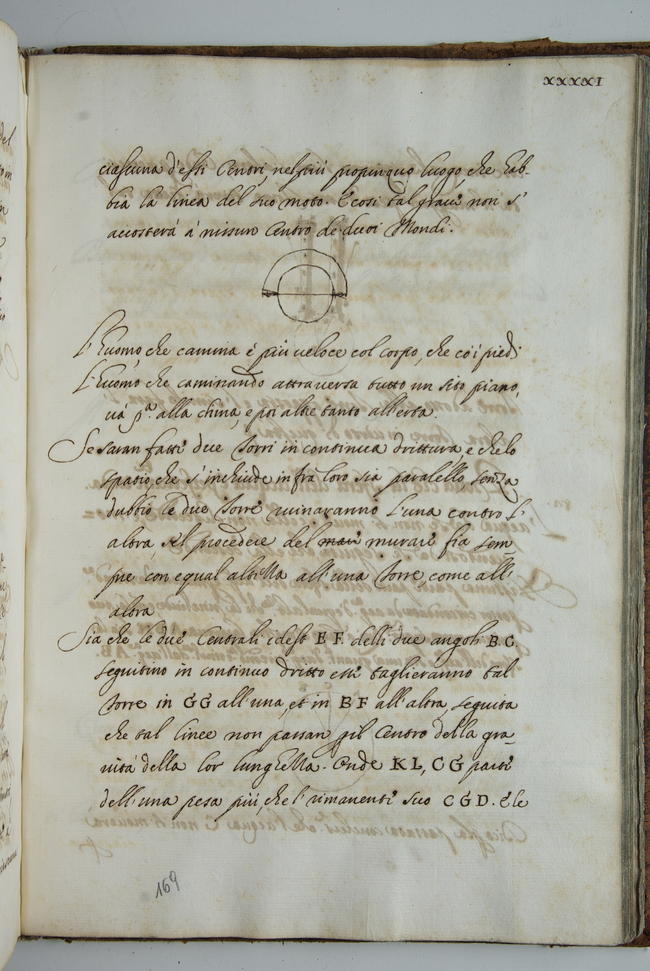 XXXXI
ciascuna d'essi Centri nel più propinquo luogo che hab-
bia la linea del suo moto. E così tal grave non s'
accosterà à nissun Centro de duoi Mondi.
L'Huomo, che camina è più veloce col corpo, che co i piedi
L'Huomo che caminando attraversa tutto un sito piano,
và pª. alla china, e poi altre tanto all'erta.
Se saran fatte due Torri in continua drittura, e che lo
spatio, che s'inchiude infrà loro sia paralello, senza
dubbio le due Torre ruinaranno l'una contro l'
altra se'l procedere del murare fia sem-
pre con equal altezza all'una Torre, come all'
altra
Sia che le due Centrali idest B F. delli due angoli B. C.
seguitino in continuo dritto essi taglieranno tal
torre in G G all'una, et in B F all'altra, seguita
che tal linee non passan p il Centro della gra-
uità della lor lunghezza. Onde K L, C G parte
dell'una pesa più, che'l rimanente suo C G D. E le
169